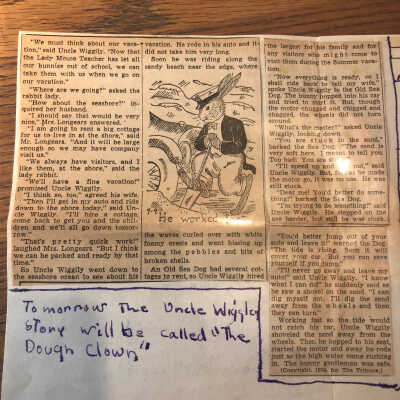 "We must think about our vaca-
tion," said Uncle Wiggily. "Now that
the Lady Mouse Teacher has let all
our bunnies out of school, we can
take them with us when we go on
our vacation."
"Where are we going?" asked the
rabbit lady.
"How about the seashore?" in-
quired her husband.
"I should say that would be very
nice," Mrs. Longears answered.
"I am going to rent a big cottage
for us to live in at the shore," said
Mr. Longears. "And it will be large
enough so we may have company
visit us."
"We always have visitors, and I
like them, at the shore," said the
lady rabbit.
"We'll have a fine vacation!"
promised Uncle Wiggily.
"I think so, too," agreed his wife.
"Then I'll get in my auto and ride
down to the shore today," said Un-
cle Wiggily. "I'll hire a cottage,
come back to get you and the chil-
dren and we'll all go down tomor-
row."
"That's pretty quick work!"
laughed Mrs. Longears. "But I think
we can be packed and ready by that
time."
So Uncle Wiggily went down to
the seashore ocean to see about his
vacation. He rode in his auto and it
did not take him very long.
Soon he was riding along the
sandy beach near the edge, where
He worked
the waves curled over with white
foamy crests and went hissing up
among the pebbles and bits of
broken shells.
An Old Sea Dog had several cot-
tages to rent, so Uncle Wiggily hired
the largest for his family and for
any visitors who might come to
visit them during the Summer vaca-
tion.
"Now everything is ready, so I
shall ride back to tell my wife,"
spoke Uncle Wiggily to the Old Sea
Dog. The bunny hopped into his car
and tried to start it. But, though
the motor chugged and chugged and
chugged, the wheels did not turn
around.
"What's the matter?" asked Uncle
Wiggily, looking down.
"You are stuck in the sand,"
barked the Sea Dog. "The sand is
very soft here. I meant to tell you.
Too bad! You are stuck."
"I'll speed up and get out," said
Uncle Wiggily. But, fast as he made
the motor go, it was no use. He was
still stuck.
"Dear me! You'd better do some-
thing!" barked the Sea Dog.
"I'm trying to do something!" said
Uncle Wiggily. He stepped on the
gas harder, but still he was stuck.
"You'd better jump out of your
auto and leave it!" howled the Dog.
"The tide is rising. Soon it will
cover your car. But you can save
yourself if you jump."
"I'll never go away and leave my
auto!" said Uncle Wiggily. "I know
what I can do!" he suddenly said as
he saw a shovel on the sand. "I can
dig myself out. I'll dig the sand
away from the wheels and then
they can turn."
Working fast so the tide would
not reach his car, Uncle Wiggily
shoveled the sand away from the
wheels. Then he hopped to his seat,
started the motor and away he rode
just as the high water came rushing
in. The bunny gentleman was safe.
(Copyright, by The Tribune)
Tomorrow the Uncle Wiggley
story will be called "The
Dough Clown"